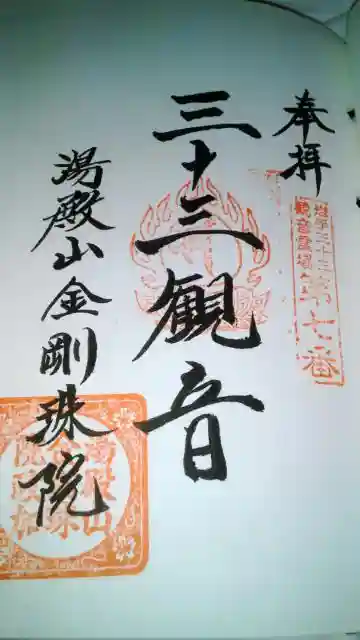 奉拝
観音霊場
第七番
三十三観音
湯殿山金剛珠院